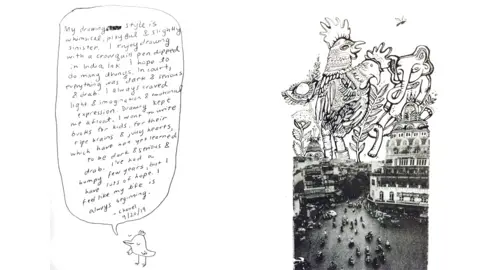 My drawing style is
whimsical, playful & slightly
sinister. I enjoy drawing
with a crowquill pen dipped
in India Ink. I hope to
do many things. In courts,
everything was dark & serious
& drab. I always craved
light & imagination &
expression. Drawing kept
me afloat. I want to write
books for kids, for their
ripe brains & young hearts,
which have not yet learned
to be dark & serious &
drab. I've had a
bumpy few years, but I
have lots of hope. I
feel like my life is
always beginning.
9/20/19